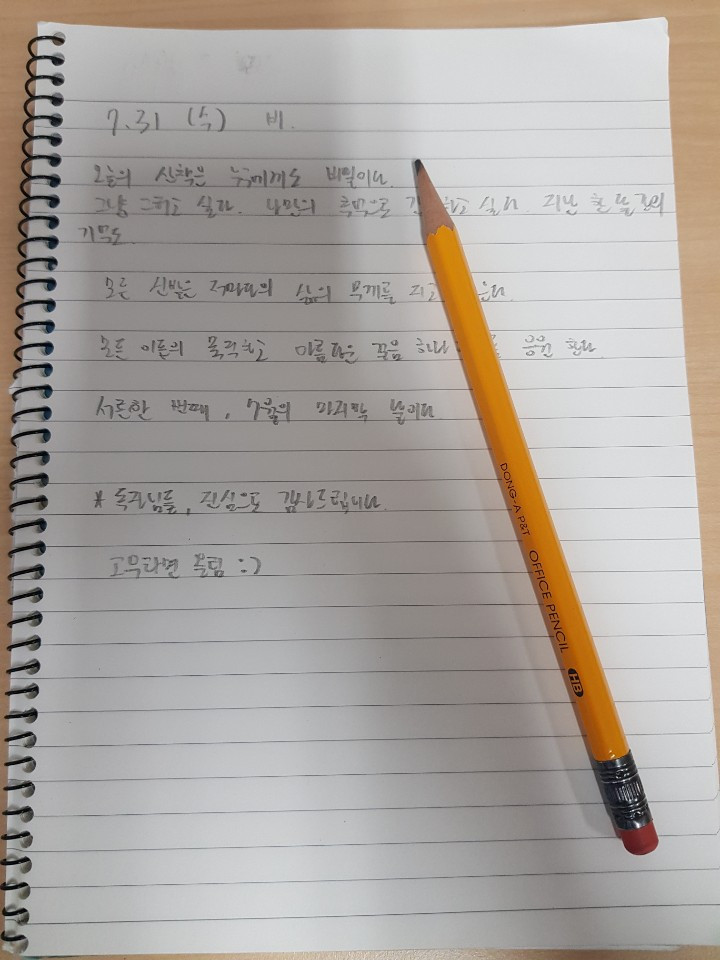 7.31 (수) 비.
오늘의 산책은 누구에게도 비밀이다.
그냥 그러고 싶다. 나만의 흑백으로 하고 싶다. 지난 한 달간의
기록도.
모든 신발은 저마다의 삶의 무게를 지고
모든 이름의 묵직하고 아름다운 꿈을 응원 한다.
서른한 번째, 7월의 마지막 날이다
* 독자님들, 진심으로 감사드립니다.
고무라면 올림 :)
DONG-A P&T OFFICE PENCIL HB